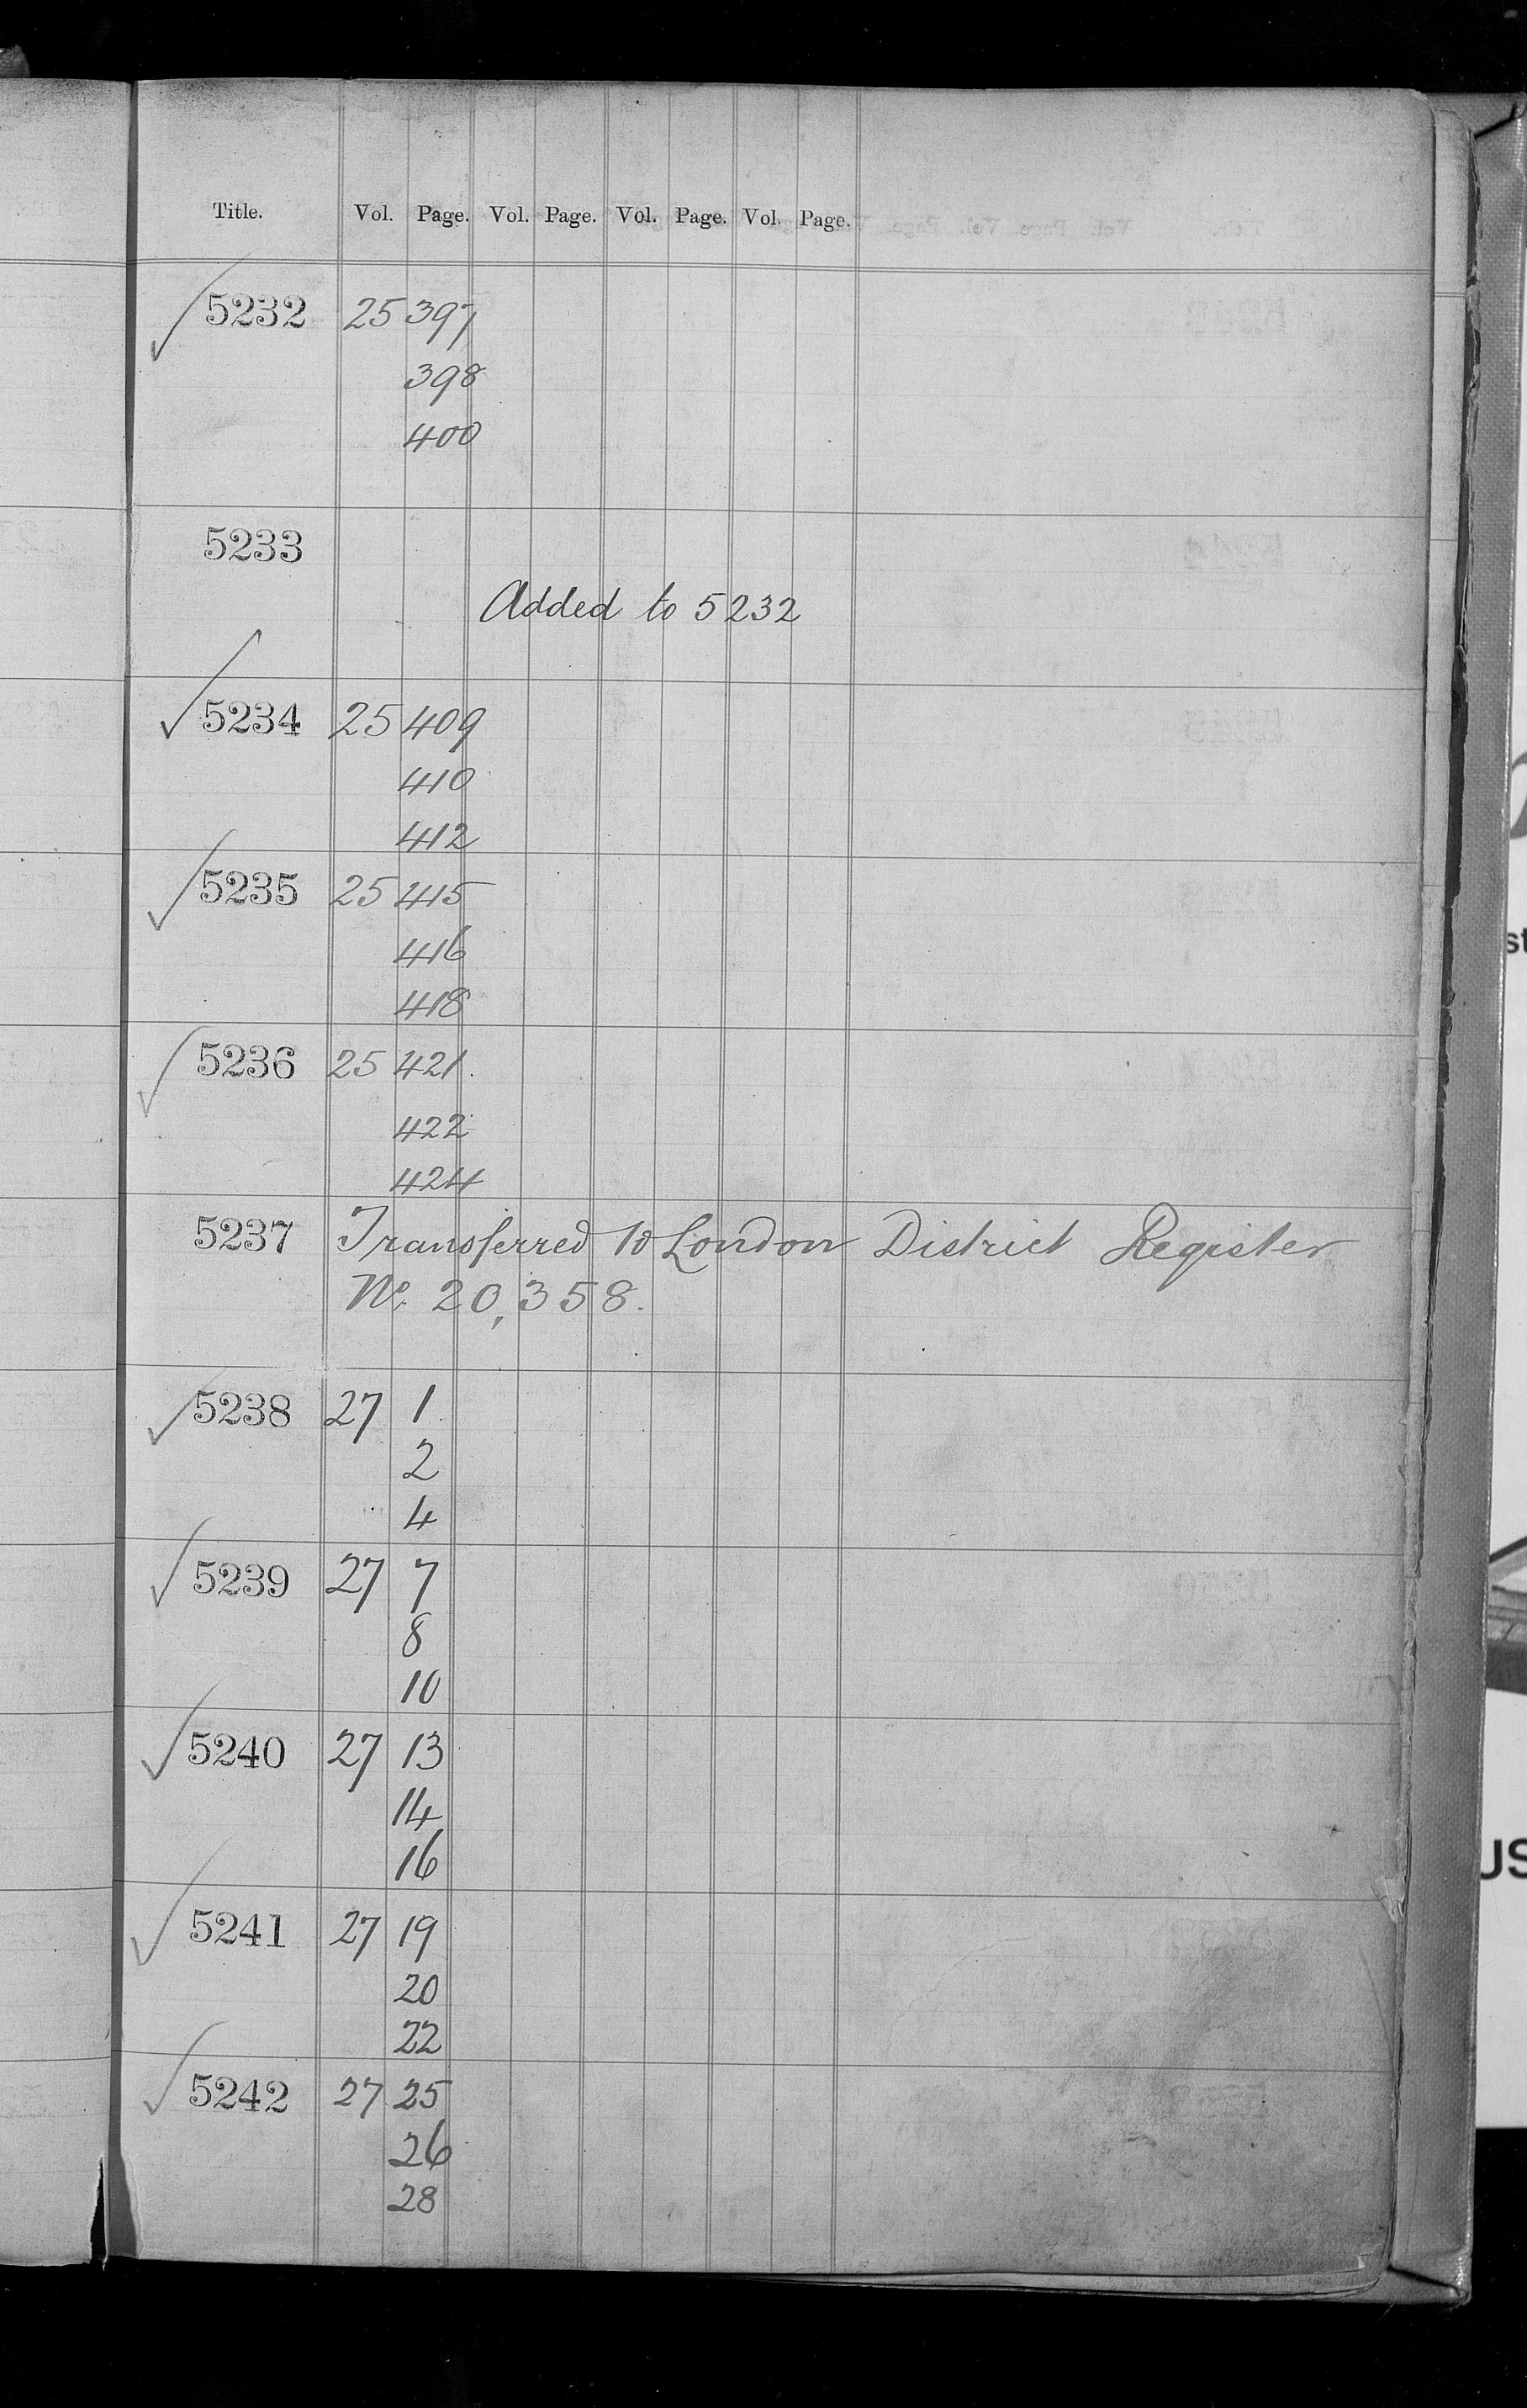 Title. Vol. Page. Vol. Page. Vol. Page. Vol. Page.
✓ 5232 25 397
398
400
5233
Added to 5232
✓ 5234 25 409
410
412
✓ 5235 25 415
416
418
✓ 5236 25 421.
422
424
5237 Transferred to London District Register
No. 20,358.
✓ 5238 27 1
2
4
✓ 5239 27 7
8
10
✓ 5240 27 13
14
16
✓ 5241 27 19
20
22
✓ 5242 27 25
26
28